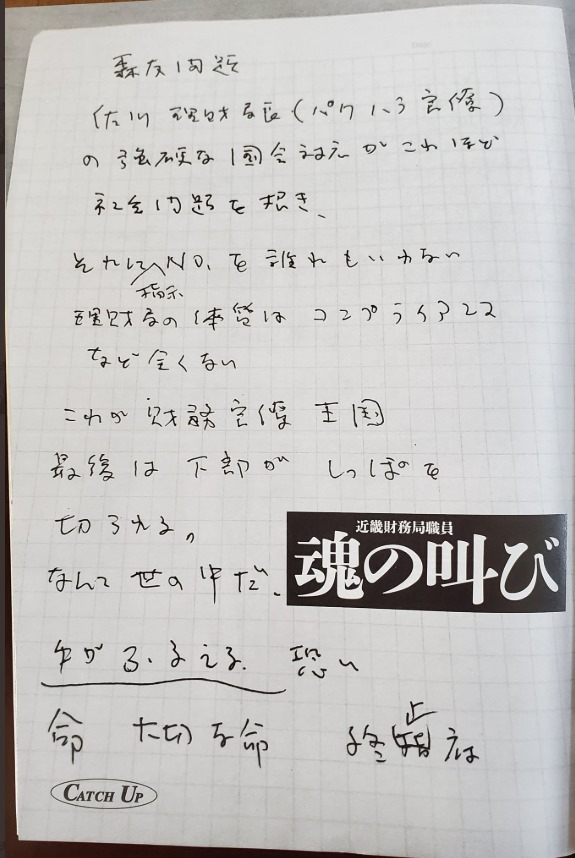 森友問題
佐川理財局長(パワハラ官僚)
の強硬な国会対応がこれほど
社会問題を招き、
それにNO.を誰れもいわない
指示
理財局の体質はコンプライアンス
など全くない
これが財務官僚王国
最後は下部がしっぽを
切られる。
なんて世の中だ、
手がふるえる. 恐い
命 大切な命 終止府
近畿財務局職員
魂の叫び
CATCH UP